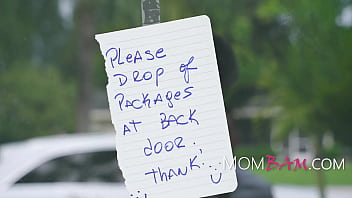 PLEASE
DROP of
PACKAGES
AT BACK
DOOR.
THANK...
MOMBAM.COM